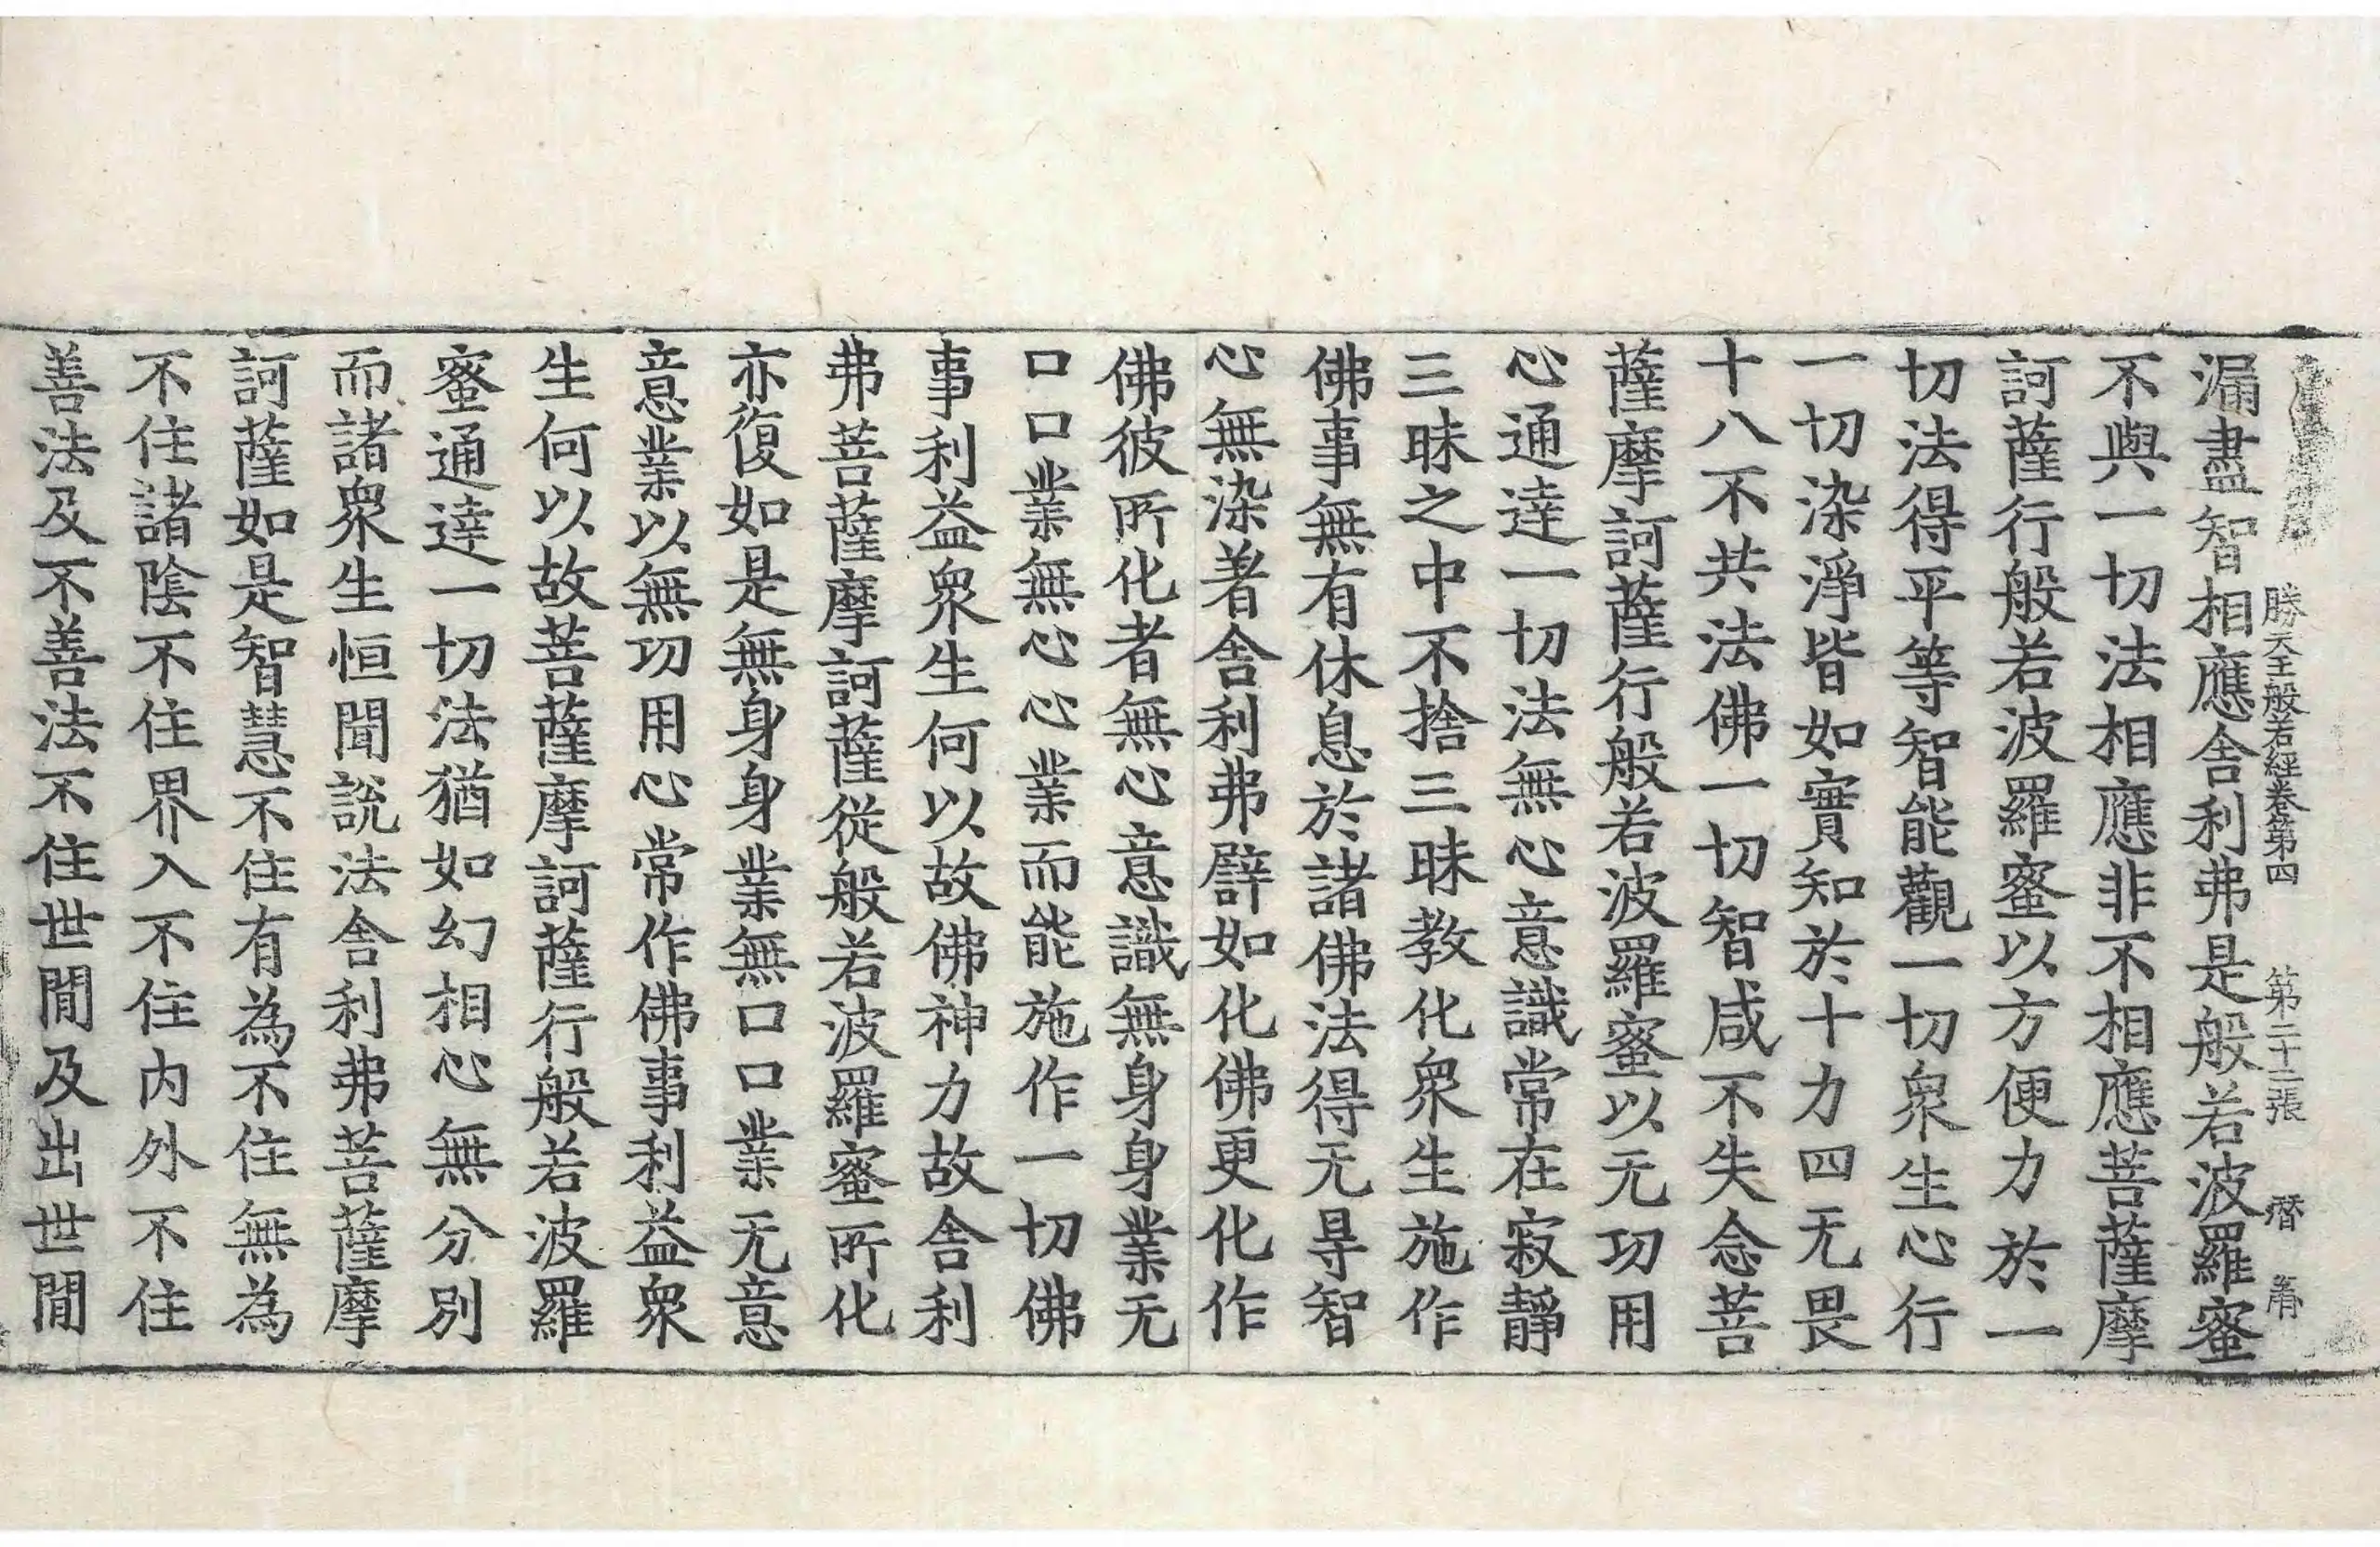 勝天王般若經卷第四　第二十二張
漏盡智相應舍利弗是般若波羅蜜
不與一切法相應非不相應菩薩摩
訶薩行般若波羅蜜以方便力於一
切法得平等智能觀一切衆生心行
一切染淨皆如實知於十力四无畏
十八不共法佛一切智咸不失念菩
薩摩訶薩行般若波羅蜜以无功用
心通達一切法無心意識常在寂靜
三昧之中不捨三昧教化衆生施作
佛事無有休息於諸佛法得无㝵智
心無染著舍利弗譬如化佛更化作
佛彼所化者無心意識無身身業无
口口業無心心業而能施作一切佛
事利益衆生何以故佛神力故舍利
弗菩薩摩訶薩從般若波羅蜜所化
亦復如是無身身業無口口業无意
意業以無功用心常作佛事利益衆
生何以故菩薩摩訶薩行般若波羅
蜜通達一切法猶如幻相心無分別
而諸衆生恒聞說法舍利弗菩薩摩
訶薩如是智慧不住有為不住無為
不住諸陰不住界入不住内外不住
善法及不善法不住世閒及出世閒